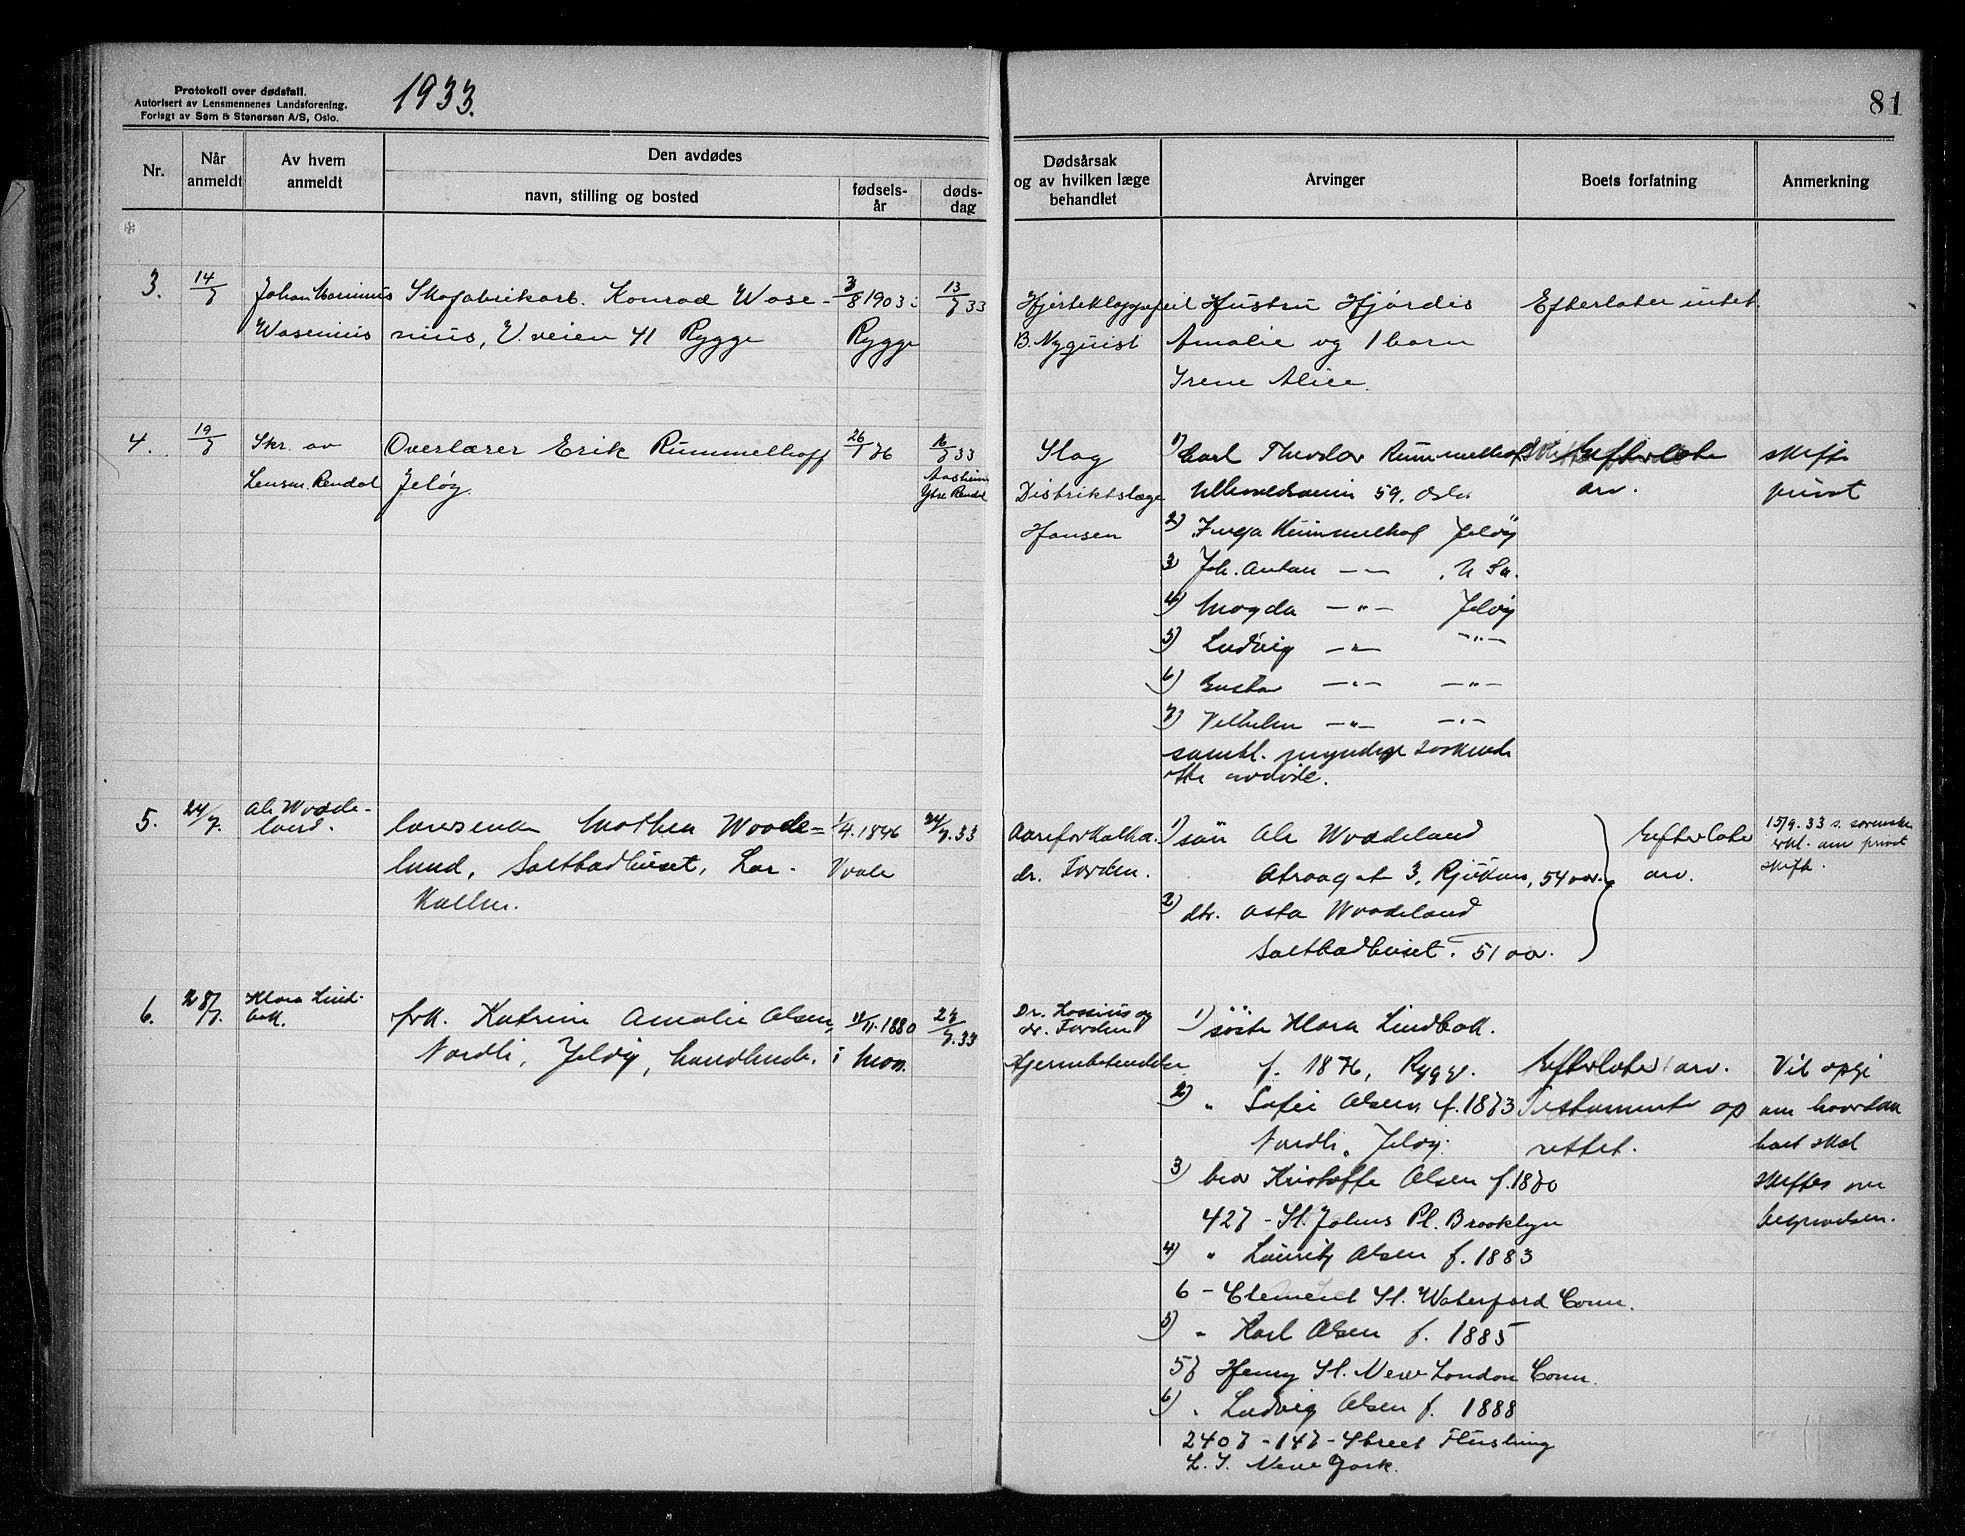 Protokoll over dødsfall.
Autorisert av Lensmennenes Landsforening.
Forlagt av Sem & Stenersen A/S, Oslo.
1933.
81
Nr.
Når anmeldt
Av hvem anmeldt
Den avdødes
navn, stilling og bosted
fødsels-år
døds-dag
Dødsårsak og av hvilken læge behandlet
Arvinger
Boets forfatning
Anmerkning
3.
14/7
Johan Marinius
Wasenius
Skofabrikarb. Konrad Wase-
nius, V. veien 41 Rygge
3/8 1903 i
Rygge
13/7 33
Hjerteklappfeil
B. Nyquist
Hustru Hjørdis
Amalie og 1 barn
Irene Alice.
Efterlater intet.
4.
19/7
Skr. av
Lensm. Rendal
Overlærer Erik Rummelhoff
Jeløy.
26/1 76
16/7 33
Ytre Rendal
Slag
Distriktslæge
Hansen
1) Carl Theodor Rummelhof
Ullevoldsveien 59, Oslo
2) Inga Rummelhof Jeløy
3) Joh. Anton — " — , U Sa.
4) Magda — " — Jeløy
5) Ludvig — " — — " —
6) Gustav — " — — " —
7) Vilhelm — " — — " —
samtl. myndige søskende
av avdøde.
Efterlater
arv.
skifte
privat
5.
24/7.
Ole Woode-
land.
Mathea Woode=
lund, Saltbadhuset, Lar-
kollen.
1/4. 1846
Vaale
24/7. 33
Aareforkalkn.
dr. Torden.
1) søn Ole Woodeland
3, Rjukan, 54 aar.
2) dtr. Asta Woodeland
Saltbadhuset. 51 aar.
Efterlater
arv.
15/9. 33 s.
erkl. om privat
skifte.
6.
28/7.
Klara Lind-
bæk.
frk. Katrine Amalie Olsen,
Nordli, Jeløy, handlende.
11/11. 1880
i Mos.
27/7. 33
Dr. Kossius og
dr. Torden
1) søster Klara Lindbæk.
f. 1876, Rygge.
2) " Sofie Olsen f. 1873
Nordli, Jeløy.
3) bror Kristoffer Olsen f. 1870
427 - St. Johns Pl. Brooklyn
4) " Lauritz Olsen f. 1883
6 - Clement St. Waterford Conn.
5) " Karl Olsen f. 1885
57 Henry St. New London Conn.
6) " Ludvig Olsen f. 1888
2407 - 147 - Street Flushing
L. I. New York.
Efterlater arv.
Testamente op
rettet.
Vil opgi
om hvordan
boet skal
skiftes om
begravelsen.